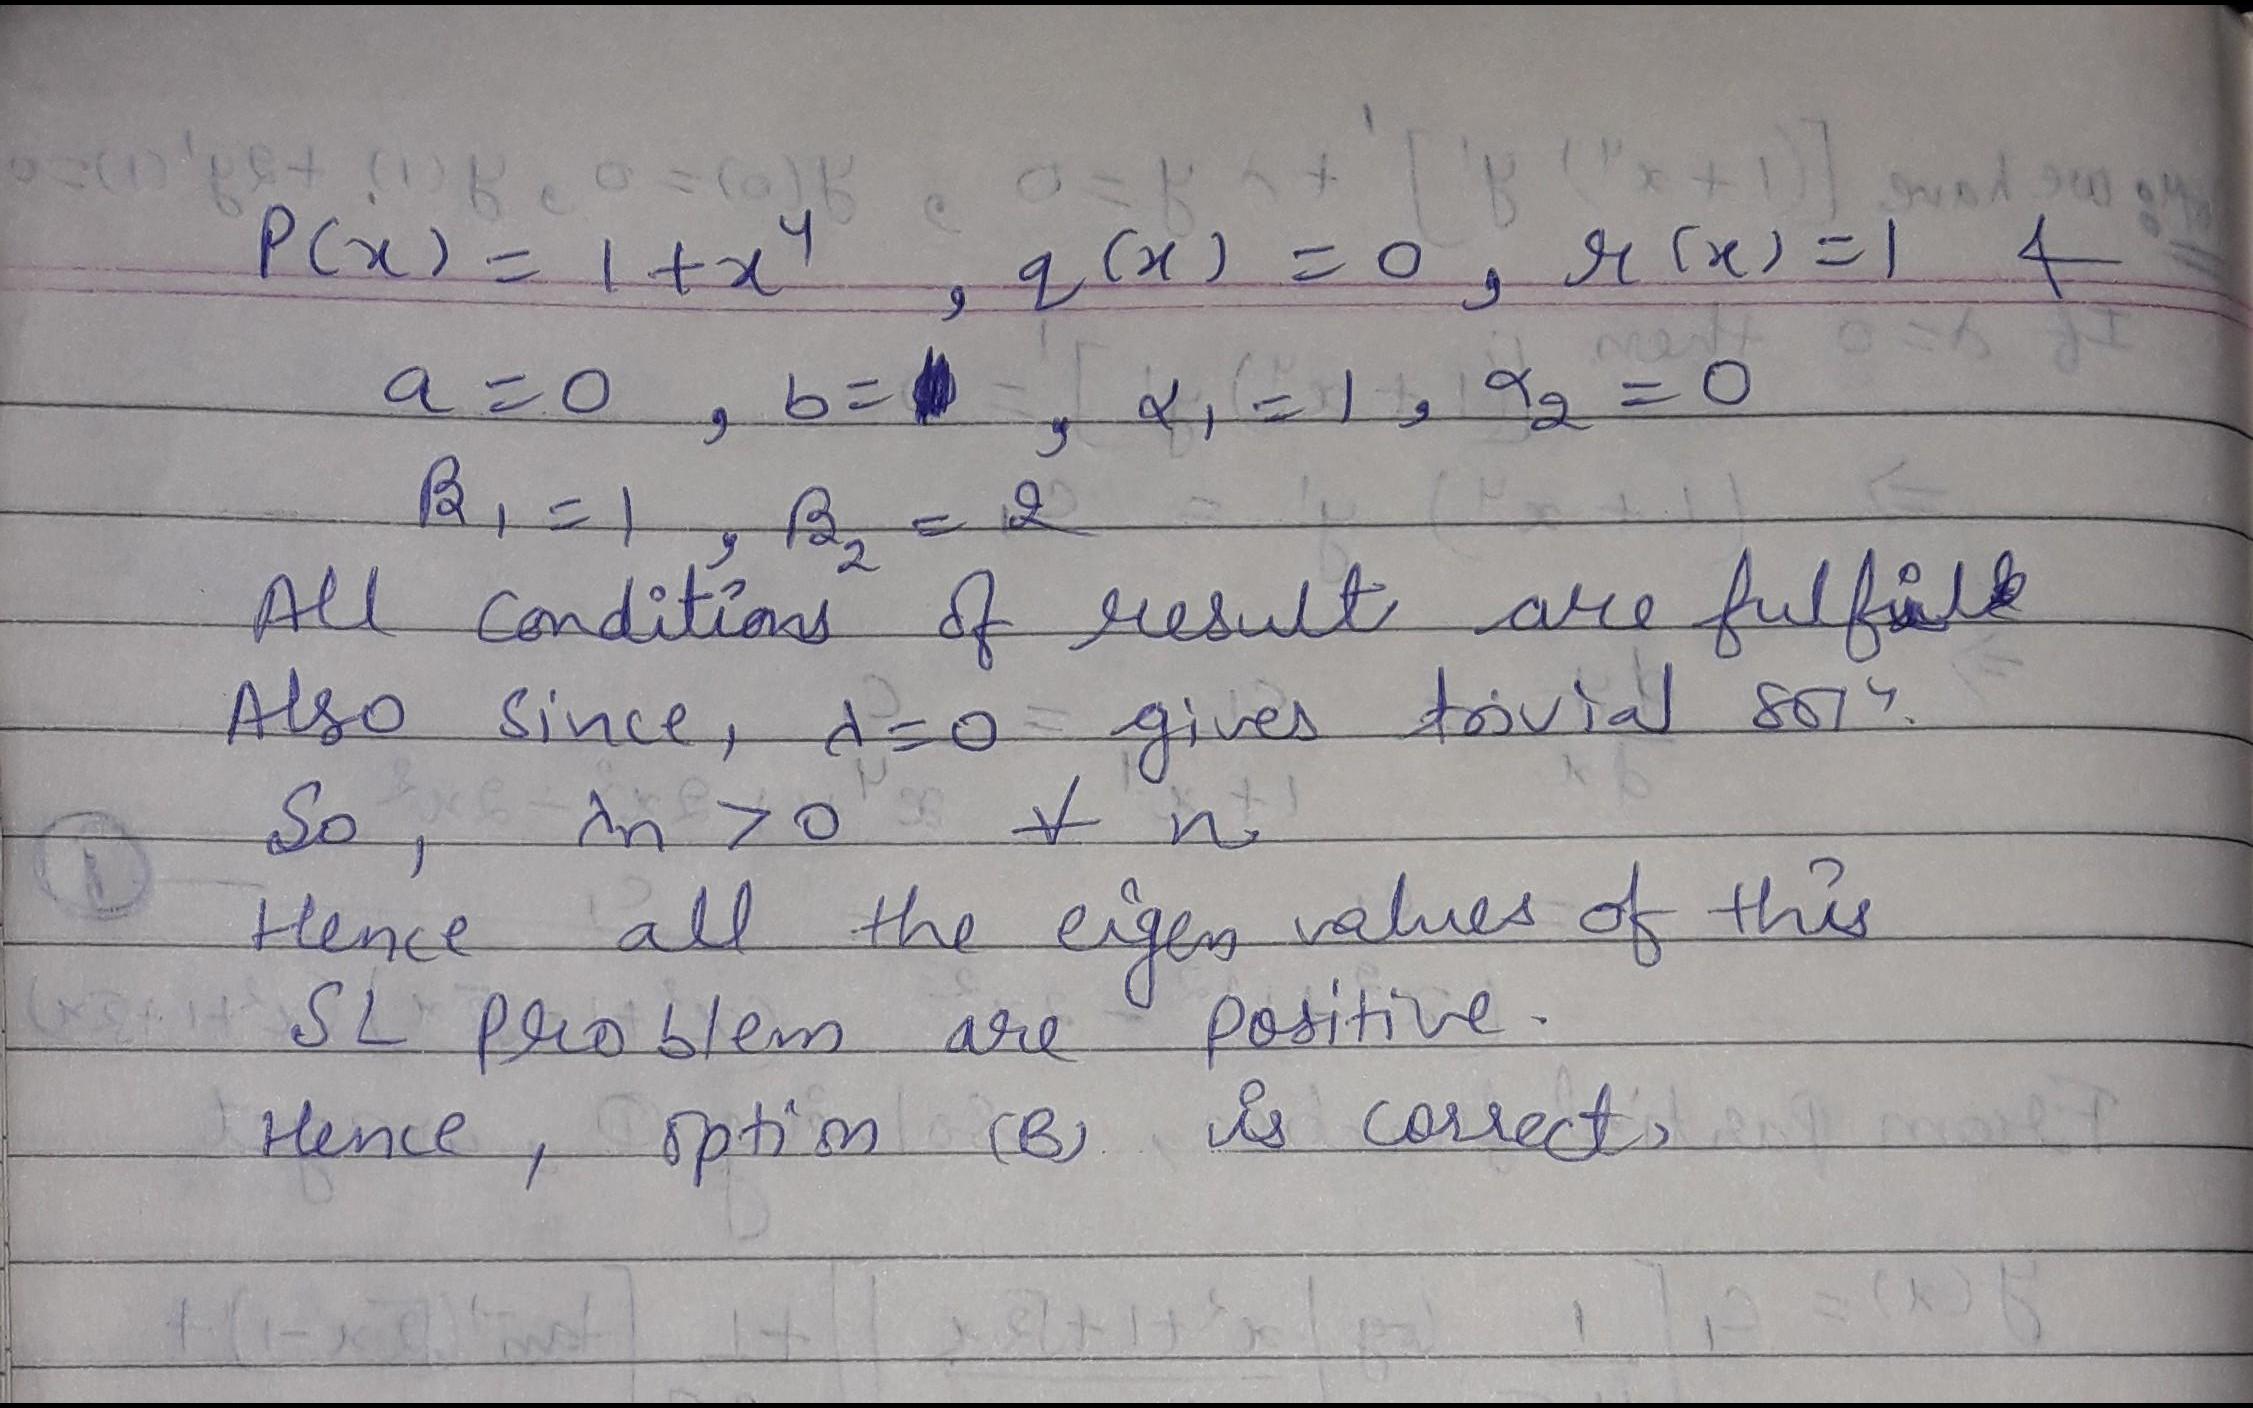 P(x) = 1+x⁴ , q(x) = 0 , r(x) = 1 &
a = 0 , b = , α₁ = 1 , α₂ = 0
β₁ = 1 , β₂ = 2
All conditions of result are
Also since, λ=0 gives trivial solⁿ.
So, λn > 0 ∀ n.
Hence all the eigen values of this
SL problem are positive.
Hence, option (B) is correct.